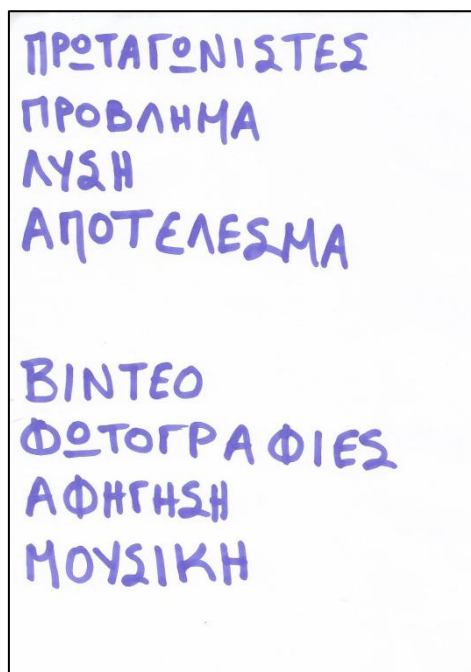 ΠΡΩΤΑΓΩΝΙΣΤΕΣ
ΠΡΟΒΛΗΜΑ
ΛΥΣΗ
ΑΠΟΤΕΛΕΣΜΑ
ΒΙΝΤΕΟ
ΦΩΤΟΓΡΑΦΙΕΣ
ΑΦΗΓΗΣΗ
ΜΟΥΣΙΚΗ